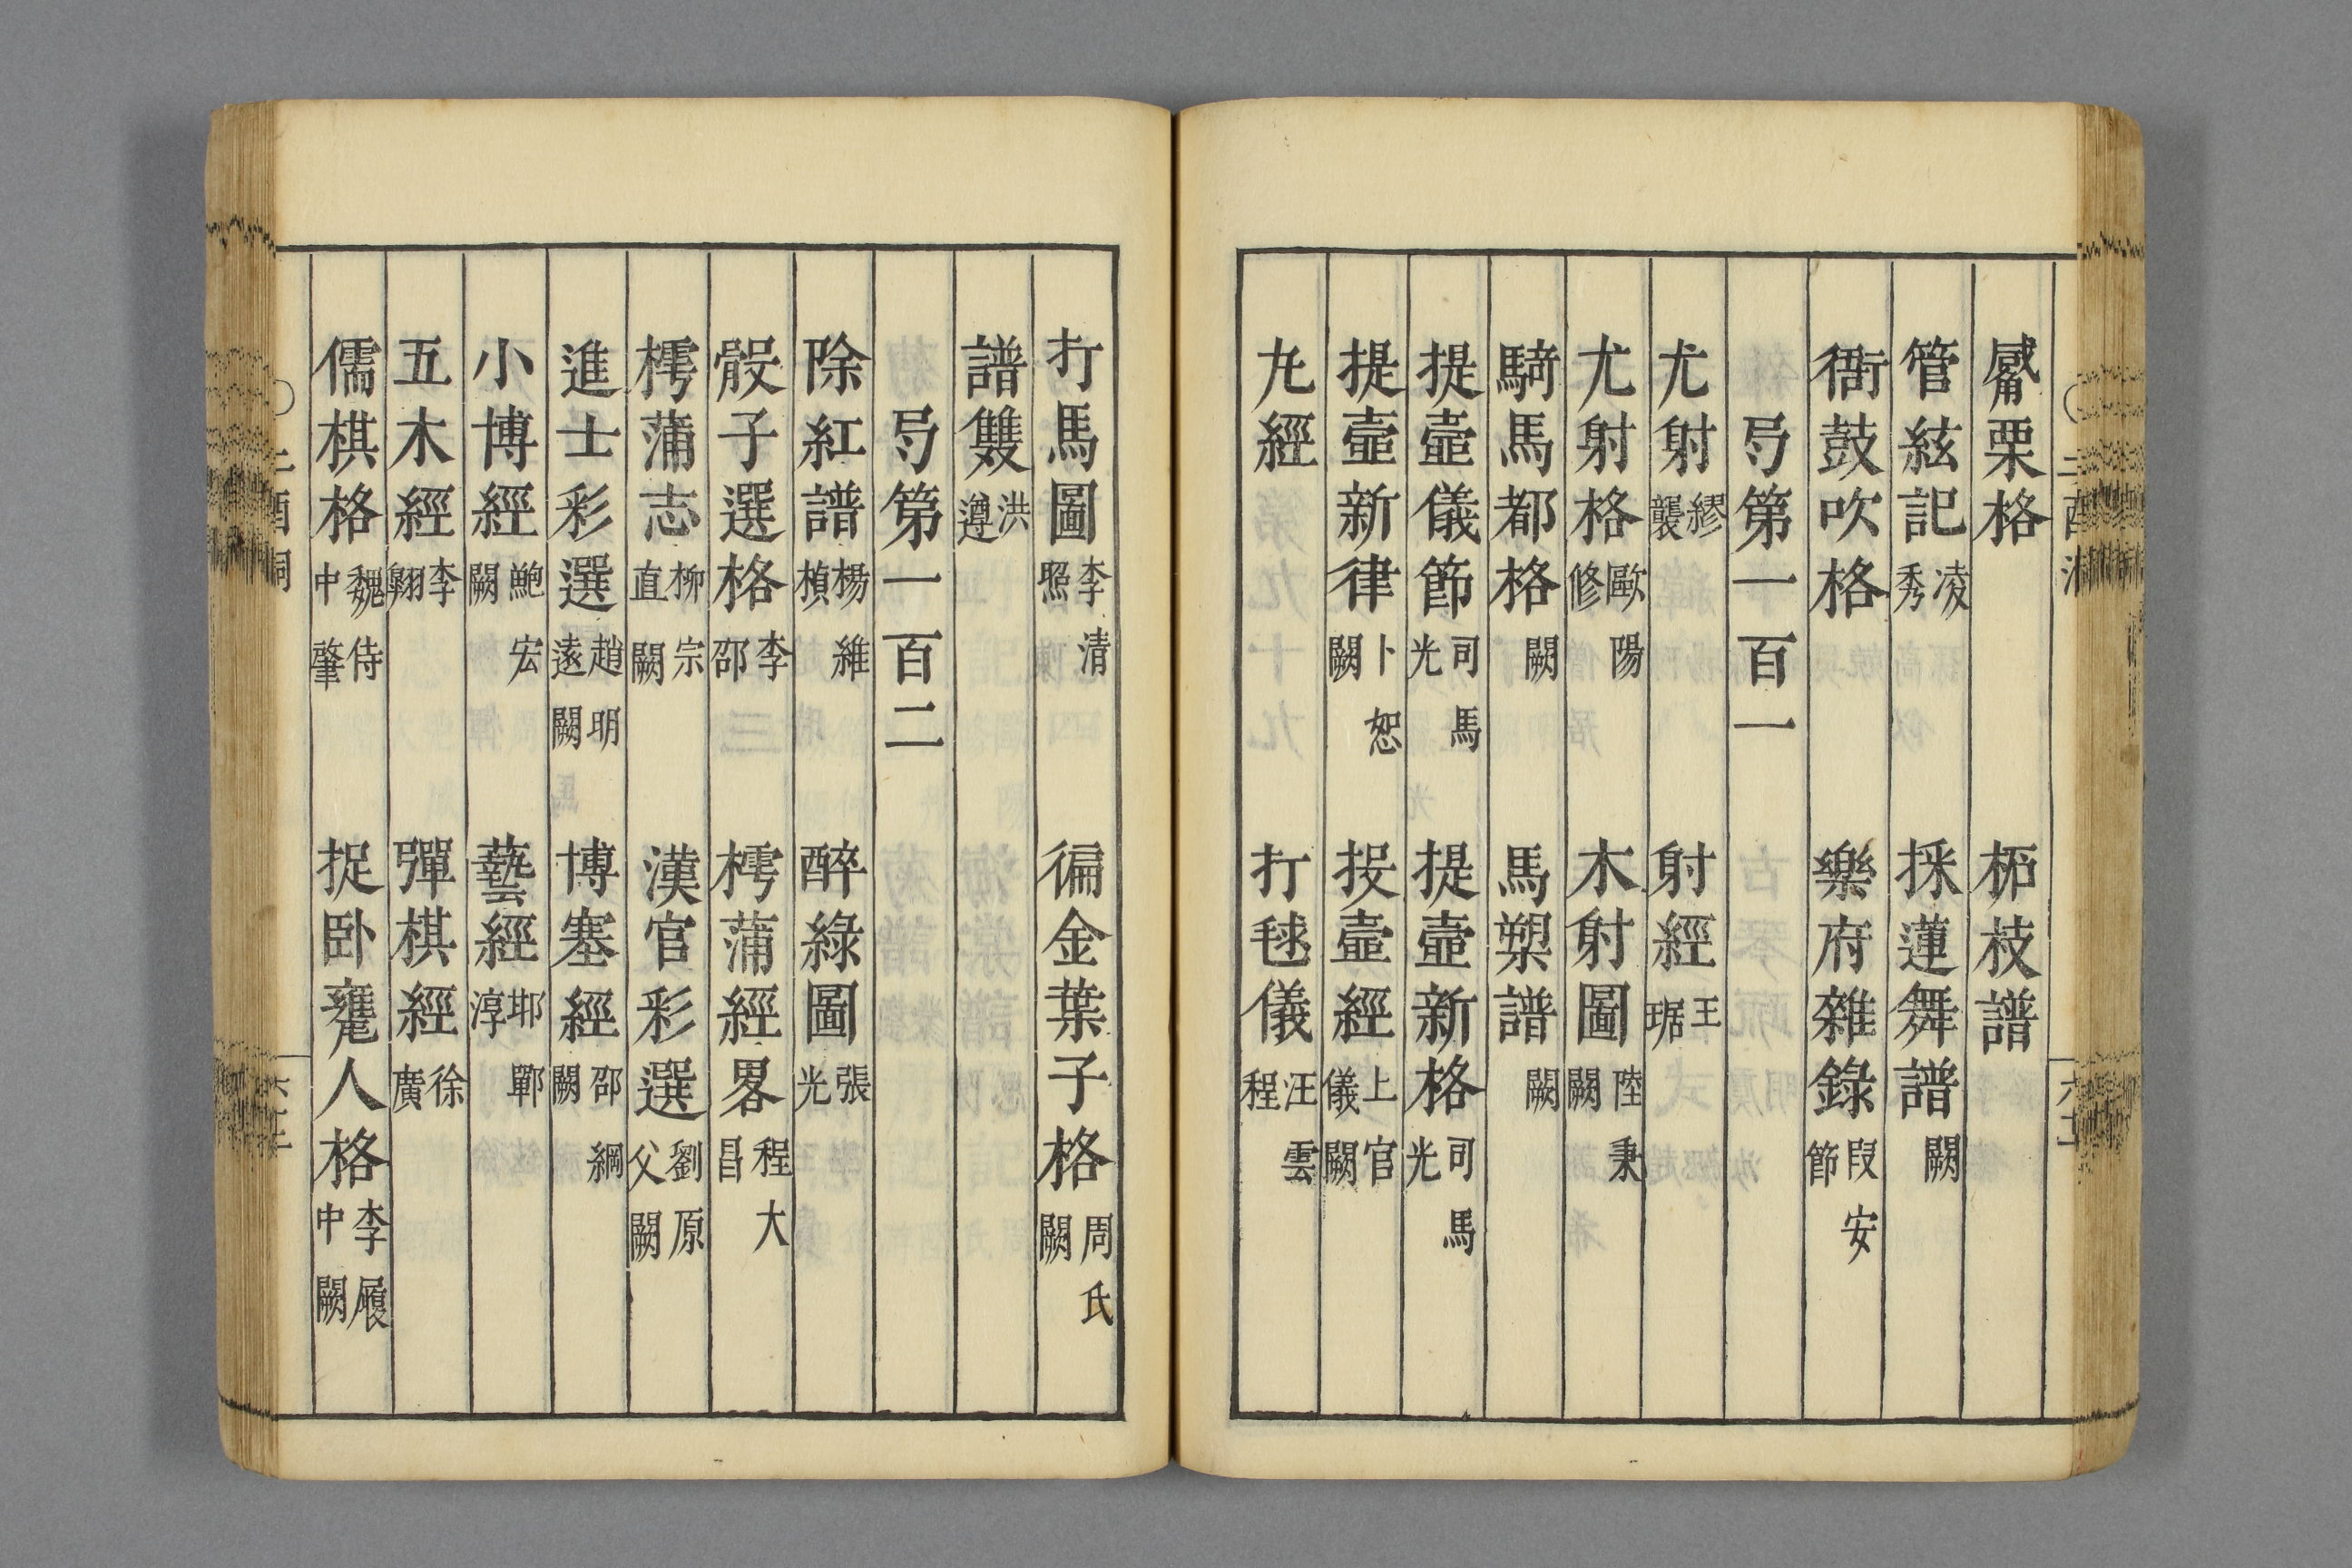 觱栗格 柘枝譜
管絃記 凌秀 採蓮舞譜 闕
衙鼓吹格 樂府雜錄 段安節
弓第一百一
尤射 繆襲 射經 王琚
尤射格 歐陽修 木射圖 陸秉闕
騎馬都格 闕 馬槊譜 闕
提壺儀節 司馬光 提壺新格 司馬光
提壺新律 卜恕闕 投壺經 上官儀闕
丸經 打毬儀 汪雲程
打馬圖 李清照 徧金葉子格 周氏闕
譜雙 洪遵
弓第一百二
除紅譜 楊維楨 醉綠圖 張光
骰子選格 李邵 樗蒲經畧 程大昌
樗蒲志 柳宗直闕 漢官彩選 劉原父闕
進士彩選 趙明遠闕 博塞經 邵綱闕
小博經 鮑宏闕 藝經 邯鄲淳
五木經 李翱 彈棋經 徐廣
儒棋格 魏侍中肇 捉卧甕人格 李履中闕